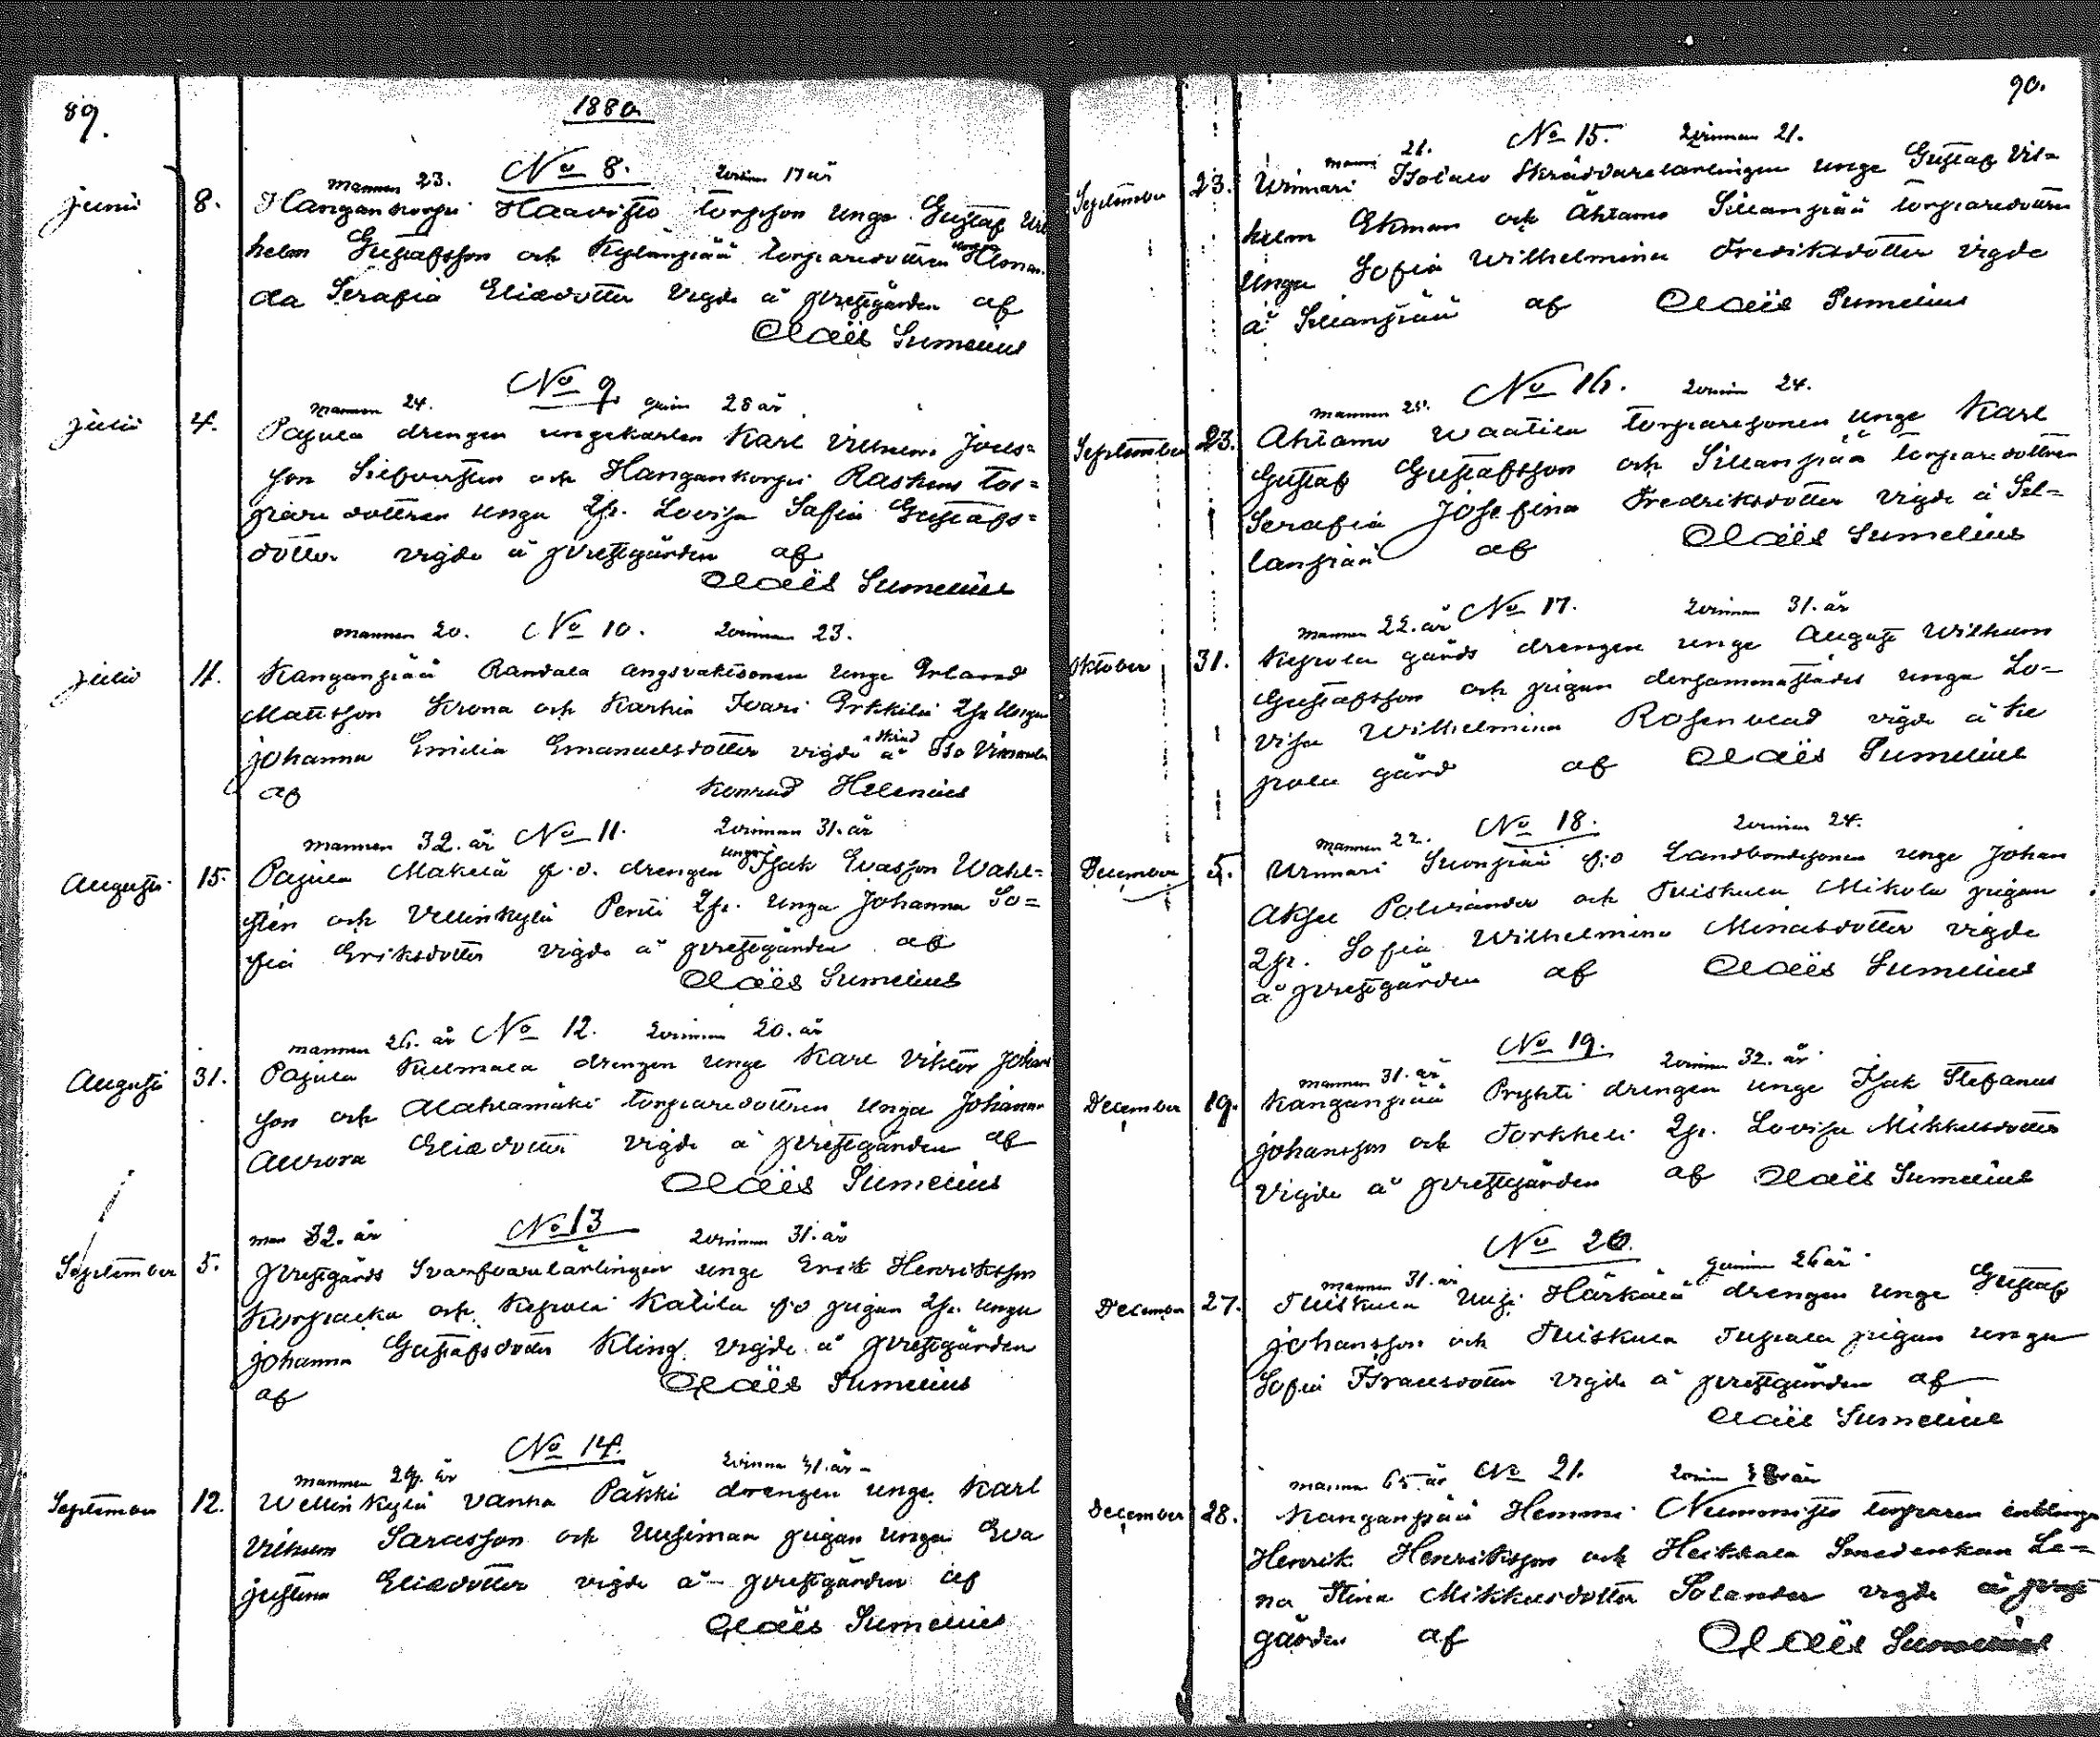 89.
1880.
No 8.
mannen 23. qvinn 17 år
Junii 8. Kangankorpi Haavisto torpson unge Gustaf Vil
helm Gustafsson och Kylänpää torparedottren unga
da Serafia Eliædotter vigde å prestgården af
Claës Sumelius
No 9
mannen 24. qvin 28 år
Julii 4. Pajula drengen ungekarlen Karl Vilhelm Joels=
son Silfversten och Hangankorpi Raskens tor=
pare dottren unga Jfr. Lovisa Sofia Gustafs=
dotter vigde å prestgården af
Claës Sumelius
mannen 20. No 10. qvinnan 23.
Julii 11. Kanganpää Randala ängsvaktsonen unge Erland
Mattsson Krona och Karhia Ivari Erkkilä Jfr Unga
Johanna Emilia Emanuelsdotter vigde å Iso
af Konrad Helenius
mannen 32. år No 11. qvinnan 31. år
Augusti 15. Pajula Mäkelä f.d. drengen unge Isak Evasson Wahl=
sten och Vellinkylä Pentti Jfr. unga Johanna So=
fia Eriksdotter vigde å prestgården af
Claës Sumelius
mannen 26. år No 12. qvinnan 20. år
Augusti 31. Pajula Kulmala drengen unge Karl Viktor Johans
son och Alahlamäki torparedottren unga Johanna
Aurora Eliædotter vigde å prestgården af
Claës Sumelius
man 32. år No 13 qvinnan 31. år
September 5. Prestgårds Svarfvarelärlingen unge Erik Henriksson
Korpialka och Kepola Katila f.d pigan Jfr. unga
Johanna Gustafsdotter Kling vigde å prestgården
af Claës Sumelius
No 14.
mannen 29. år qvinna 31. år
September 12. Wellinkylä Vanha Päkki drengen unge Karl
Vilhelm Sarasson och Uusimaa pigan unga Eva
Justina Eliædotter vigde å prestgården af
Claës Sumelius
90.
manns 21. No 15. qvinnan 21.
September 23. Urimari Isotalo Skräddarelärlingen unge Gustaf Vil=
helm Ekman och Ahtamo Sillanpää torparedottren
unga Sofia Wilhelmina Fredriksdotter vigde
å Sillanpää af Claës Sumelius
No 16.
mannen 25. qvinnan 24.
September 23. Ahtamo Waatila torparesonen unge Karl
Gustaf Gustafsson och Sillanpää torparedottren
Serafia Josefina Fredriksdotter vigde å Sil=
lanpää af Claës Sumelius
mannen 22. år No 17. qvinnan 31. år
Oktober 31. Kepola gårds drengen unge August Wilhelm
Gustafsson och pigan dersammastädes unga Lo=
visa Wilhelmina Rosenblad vigde å Ke
pola gård af Claës Sumelius
mannen 22. No 18. qvinnan 24.
December 5. Urimari Suonpää f.d Landbondesonen unge Johan
Aksel Polviander och Tuiskula Mikola pigan
Jfr. Sofia Wilhelmina Minasdotter vigde
å prestgården af Claës Sumelius
No 19.
mannen 31. år qvinnan 32. år
December 19. Kanganpää Pryhti drengen unge Isak Stefanus
Johansson och Torkkeli Jfr. Lovisa Mikkelsdotter
vigde å prestgården af Claës Sumelius
No 20.
mannen 31. år qvinnan 26 år
December 27. Tuiskula Uusi Härkälä drengen unge Gustaf
Johansson och Tuiskula Tupala pigan unga
Sofia Israelsdotter vigde å prestgården af
Claës Sumelius
mannen 65. år No 21. qvinn år
December 28. Kanganpää Hemmi Nummisto torparen enklingen
Henrik Henriksson och Heikkala Smedenkan Le=
na Stina Mikkelsdotter Solander vigde å prest
gården af Claës Sumelius